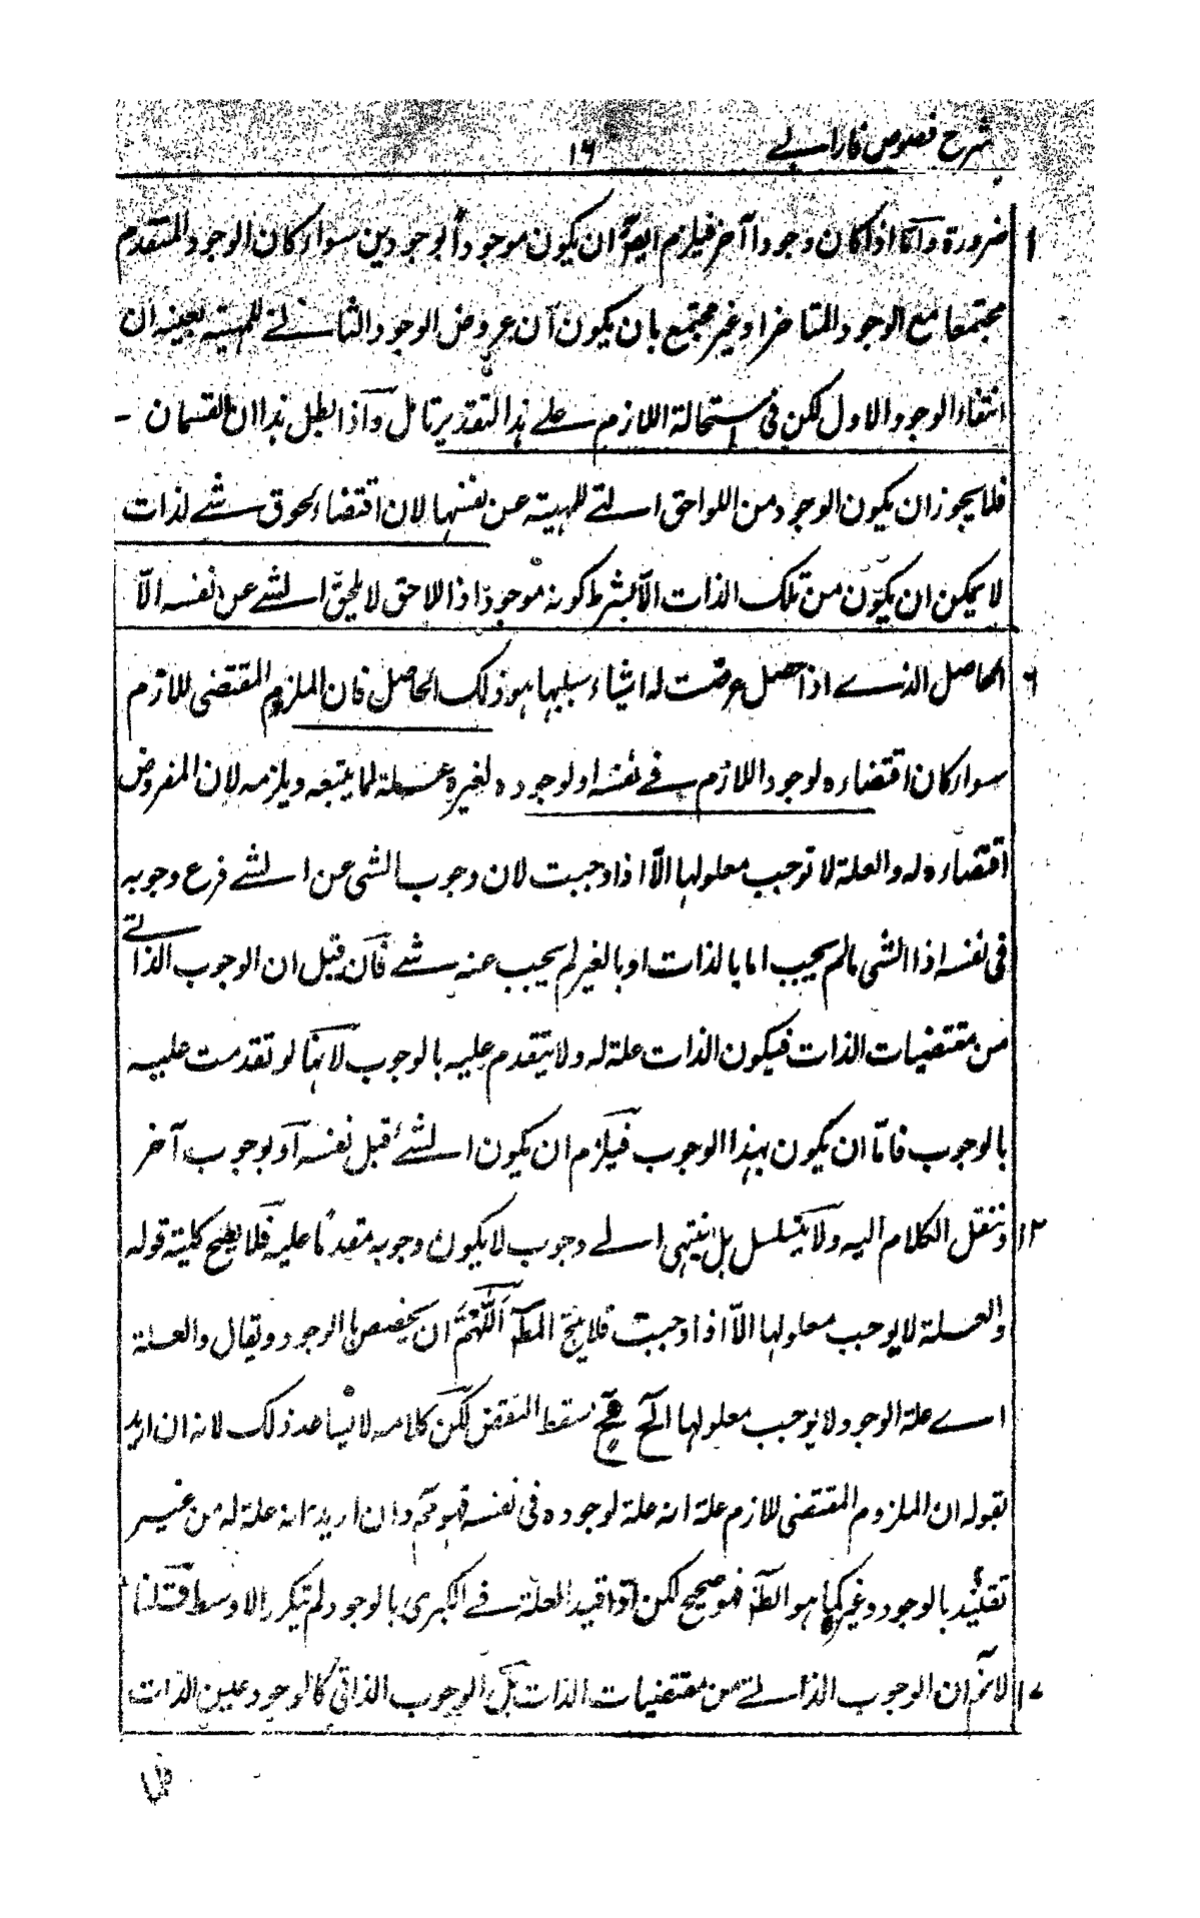 شرح فصوص فارابے ١٦
١ ضرورة واما اذا كان وجودا آخر فيلزم ايضا ان يكون موجودا بوجودين سواء كان الوجود المتقدم
مجتمعا مع الوجود المتاخر او غير مجتمع بان يكون آن عروض الوجود الثانے للمهية بعينه ان
انتفاء الوجود الاول لكن فى استحالة اللازم علے هذا التقدير تامل واذا بطل هذا ان القسمان -
فلا يجوز ان يكون الوجود من اللواحق التے للمهية عن نفسها لان اقتضاء لحوق شے لذات
لا يمكن ان يكون من تلك الذات الا بشرط كونه موجودا اذ اللاحق لا يلحق الشے عن نفسه الّا
٦ الحاصل الذے اذا حصل عرضت له اشياء سببها هو ذلك الحاصل فان الملزوم المقتضى للازم
سواء كان اقتضاءه لوجود اللازم فے نفسه او لوجوده لغيره علة لما يتبعه ويلزمه لان المفروض
اقتضاءه له والعلة لا توجب معلولها الّا اذا وجبت لان وجوب الشى عن الشے فرع وجوبه
فى نفسه اذ الشى ما لم يجب اما بالذات او بالغير لم يجب عنه شے فان قيل ان الوجوب الذاتے
من مقتضيات الذات فيكون الذات علة له ولا يتقدم عليه بالوجوب لانها لو تقدمت عليه
بالوجوب فامّا ان يكون بهذا الوجوب فيلزم ان يكون الشئ قبل نفسه او بوجوب آخر
١٢ وننقل الكلام اليه ولا يتسلسل بل ينتهى الے وجوب لا يكون وجوبه مقدما عليه فلا يصح كلية قوله
والعلة لا يوجب معلولها الّا اذا وجبت فلا ينتج المط اللّهُمَّ ان يخصص بالوجود ويقال والعلة
اے علة الوجود لا يوجب معلولها الخ فح سقط النقض لكن كلامه لا يساعد ذلك لانه ان اريد
بقوله ان الملزوم المقتضى للازم علة انه علة لوجوده فى نفسه فهو مم وان اريد انه علة له من غير
تقييد بالوجود وغير كما هو الظ فهو صحيح لكن اذا قيد العلة فے الكبرى بالوجود لم يتكرر الاوسط قلنا
١٧ لا نم ان الوجوب الذاتے من مقتضيات الذات بل الوجوب الذاتى كالوجود عين الذات